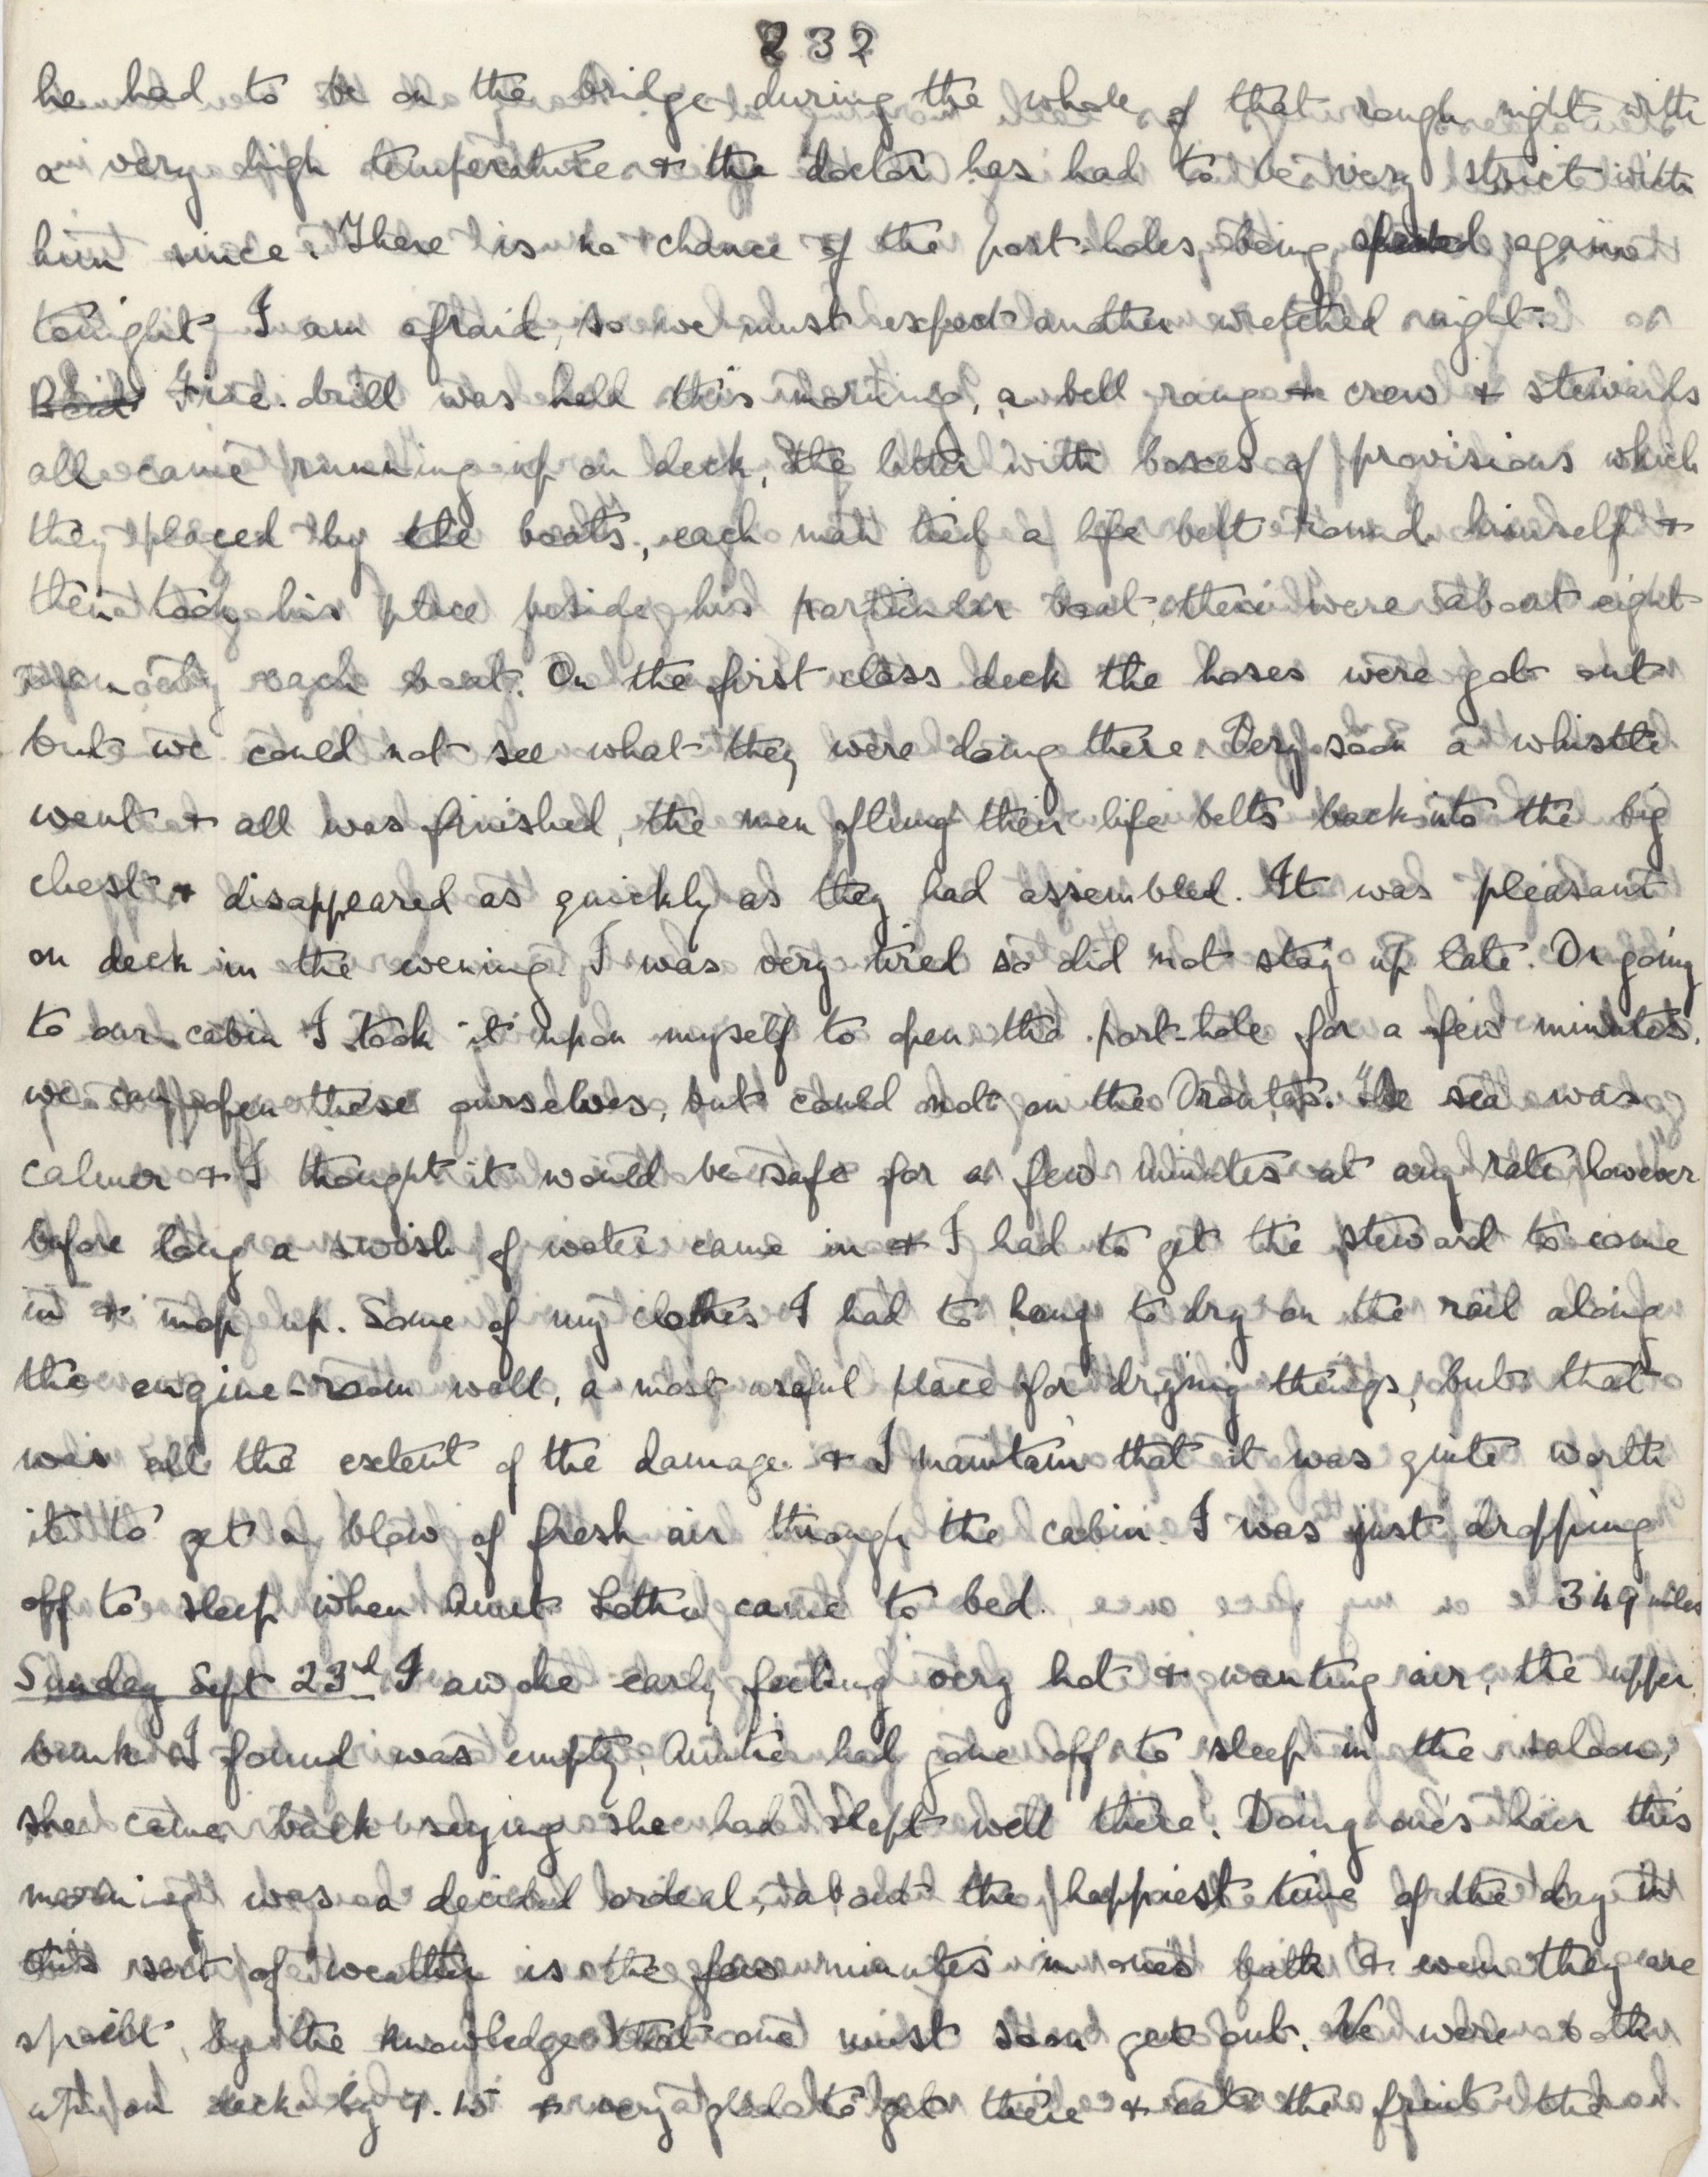 232
he had to be on the bridge during the whole of that rough night with
a very high temperature & the doctor has had to be very strict with
him since. There is no chance of the port-holes being opened again
tonight I am afraid, so we must expect another wretched night.
Boat Fire-drill was held this morning, a bell rang & crew & stewards
all came running up on deck, the latter with boxes of provisions which
they placed by the boats, each man tied a life belt round himself &
then took his place beside his particular boat, there were about eight
men to each boat. On the first class deck the hoses were got out
but we could not see what they were doing there. Very soon a whistle
went & all was finished, the men flung their life belts back into the big
chest & disappeared as quickly as they had assembled. It was pleasant
on deck in the evening. I was very tired so did not stay up late. On going
to our cabin I took it upon myself to open the port-hole for a few minutes,
we can open these ourselves, but could not on the Orontes. The sea was
calmer & I thought it would be safe for a few minutes at any rate however
before long a swish of water came in & I had to get the steward to come
in & mop up. Some of my clothes I had to hang to dry on the rail along
the engine-room wall, a most useful place for drying things, but that
was all the extent of the damage & I maintain that it was quite worth
it to get a blow of fresh air through the cabin. I was just dropping
off to sleep when Aunt Lottie came to bed. 349 miles
Sunday Sept 23rd I awoke early feeling very hot & wanting air, the upper
bunk I found was empty, Auntie had gone off to sleep in the saloon,
she came back saying she had slept well there. Doing one's hair this
morning was a decided ordeal, about the happiest time of the day in
this sort of weather is the few minutes in one's bath & even they are
spoilt by the knowledge that one must soon get out. We were both
up on deck by 7.15 & very glad to get there & eat the fruit the